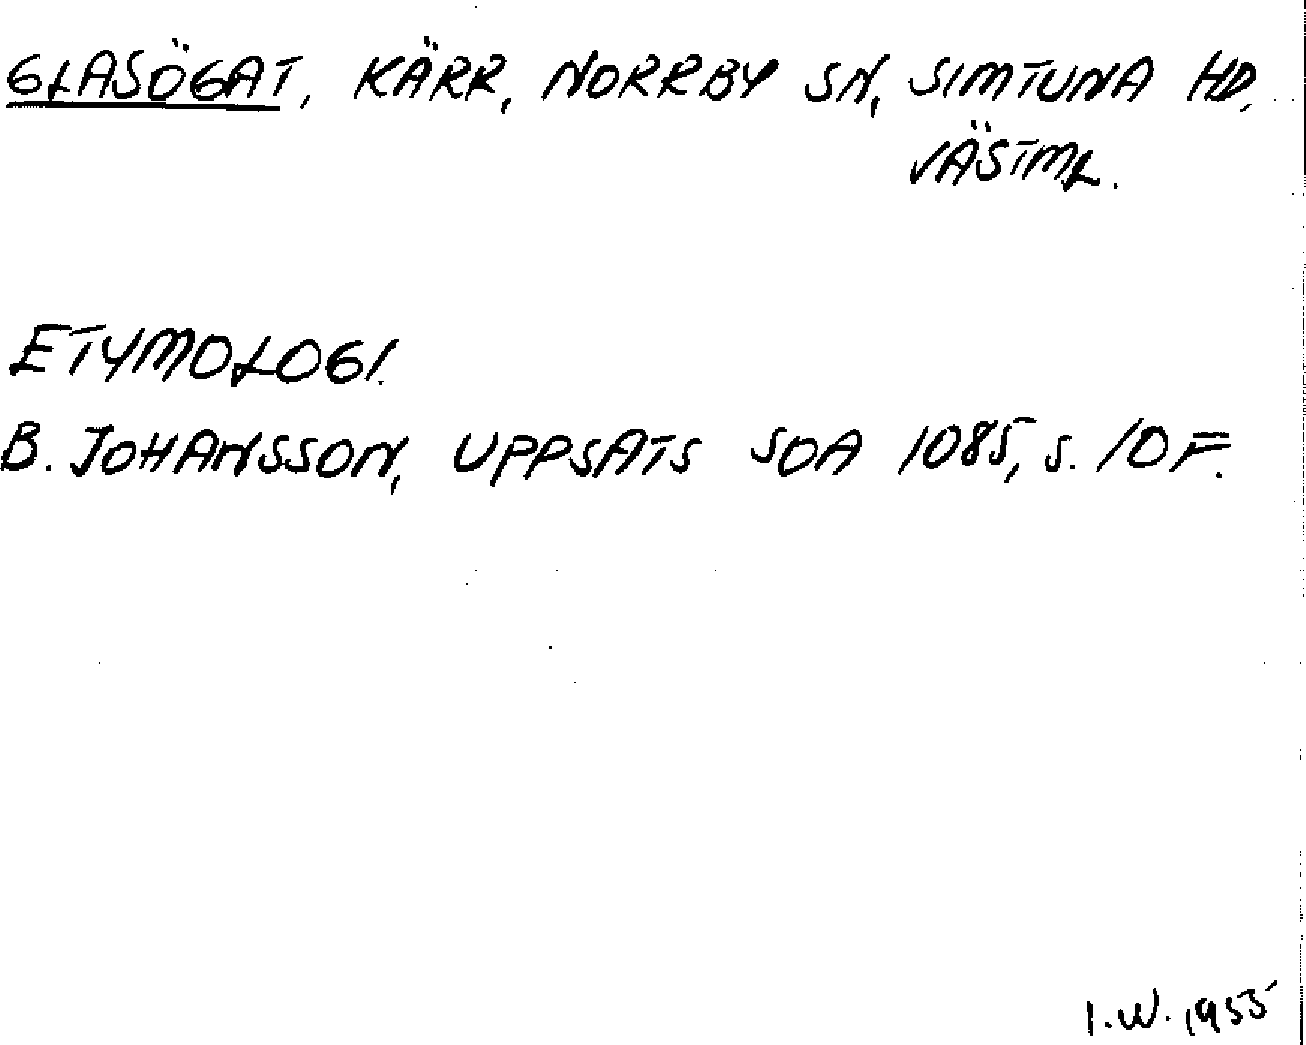 GLASÖGAT, KÄRR, NORRBY SN, SIMTUNA HD,
VÄSTML.
ETYMOLOGI.
B. JOHANSSON, UPPSATS SOA 1085, S. 10 F.
I.W. 1955